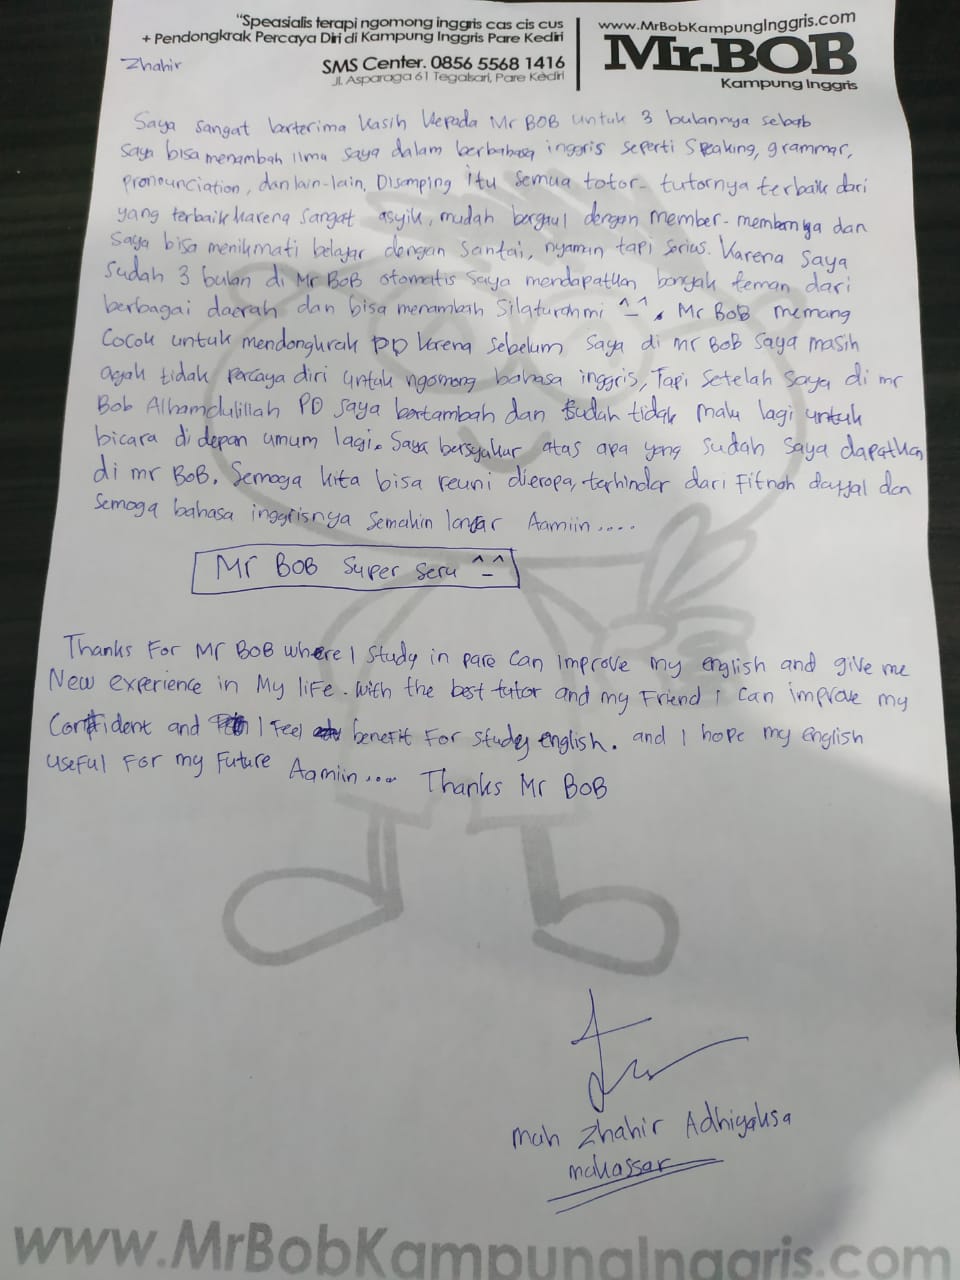 "Speasialis terapi ngomong inggris cas cis cus
+ Pendongkrak Percaya Diri di Kampung Inggris Pare Kediri
SMS Center. 0856 5568 1416
Jl. Asparaga 61 Tegalsari, Pare Kediri
www.MrBobKampungInggris.com
Mr.BOB
Kampung Inggris
Zhahir
Saya sangat berterima kasih kepada Mr BOB untuk 3 bulannya sebab
saya bisa menambah ilmu saya dalam berbahasa inggris seperti Speaking, grammar,
pronounciation, dan lain-lain. Disamping itu semua totor-tutornya terbaik dari
yang terbaik karena sangat asyik, mudah bergaul dengan member-membernya dan
saya bisa menikmati belajar dengan santai, nyaman tapi serius. Karena saya
sudah 3 bulan di Mr BOB otomatis saya mendapatkan banyak teman dari
berbagai daerah dan bisa menambah silaturahmi ^_^. Mr BOB memang
cocok untuk mendongkrak PD karena sebelum saya di mr BOB saya masih
agak tidak percaya diri untuk ngomong bahasa inggris, Tapi setelah saya di mr
Bob Alhamdulillah PD saya bertambah dan sudah tidak malu lagi untuk
bicara di depan umum lagi. Saya bersyukur atas apa yang sudah saya dapatkan
di mr BOB. Semoga kita bisa reuni dieropa, terhindar dari Fitnah dajjal dan
semoga bahasa inggrisnya semakin lancar Aamiin....
Mr BOB super seru ^_^
Thanks For Mr BOB where I study in pare can improve my english and give me
New experience in My life. with the best tutor and my Friend i can improve my
Confident and I Feel benefit For study english. and I hope my english
useful For my Future Aamiin.... Thanks Mr BOB
Muh Zhahir Adhiyaksa
makassar
www.MrBobKampungInggris.com